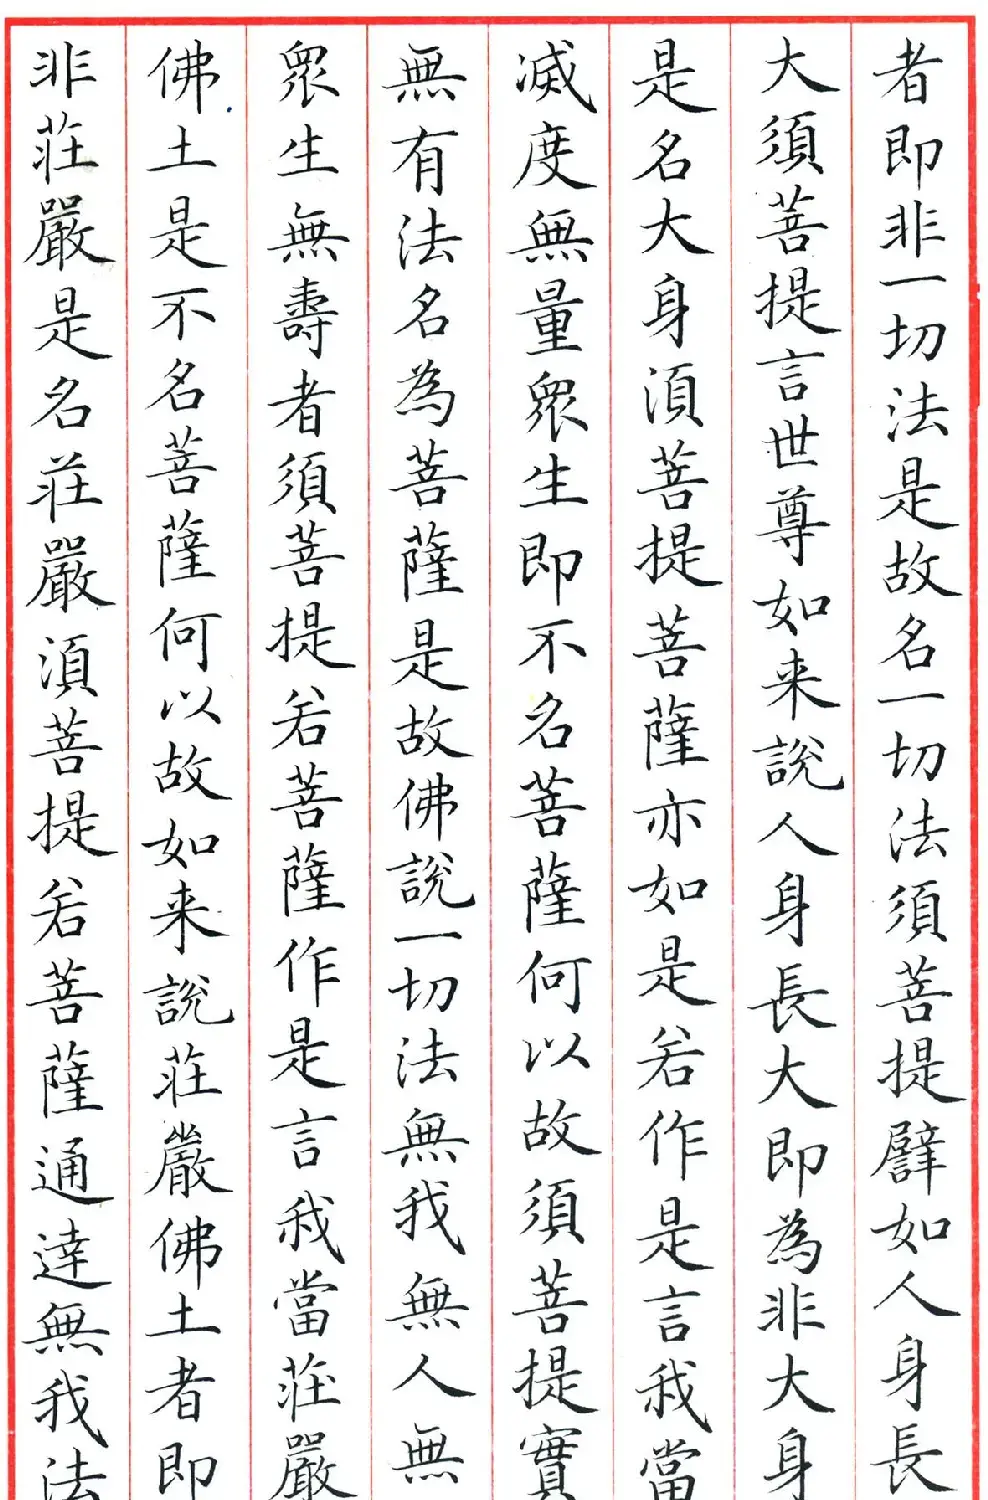 者即非一切法是故名一切法須菩提譬如人身長
大須菩提言世尊如来說人身長大即為非大身
是名大身須菩提菩薩亦如是若作是言我當
滅度無量眾生即不名菩薩何以故須菩提實
無有法名為菩薩是故佛說一切法無我無人無
眾生無壽者須菩提若菩薩作是言我當莊嚴
佛土是不名菩薩何以故如来說莊嚴佛土者即
非莊嚴是名莊嚴須菩提若菩薩通達無我法